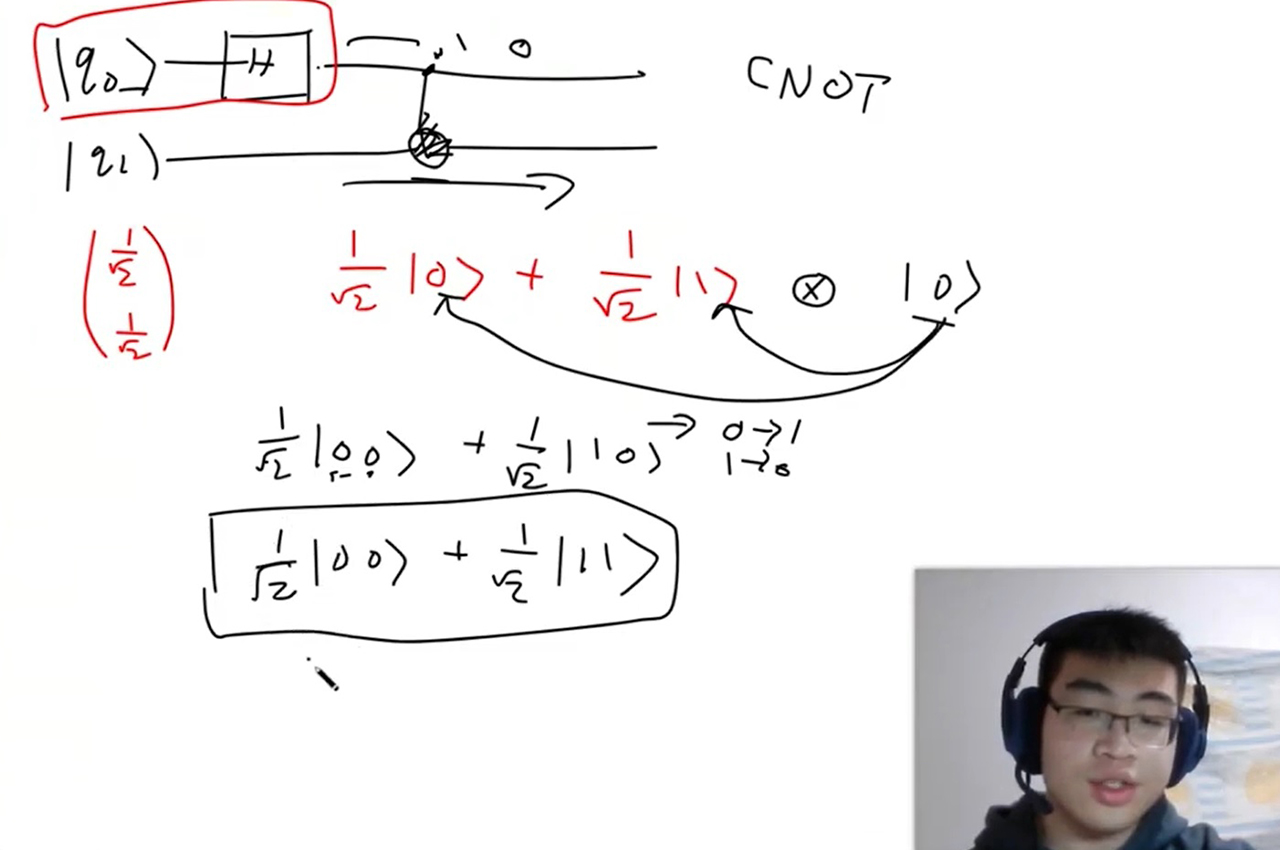 |q₀⟩ H 1 0 CNOT
|q₁⟩
(1/√2 1/√2) 1/√2 |0⟩ + 1/√2 |1⟩ ⊗ |0⟩
1/√2 |00⟩ + 1/√2 |10⟩ → 0→1
1→0
1/√2 |00⟩ + 1/√2 |11⟩